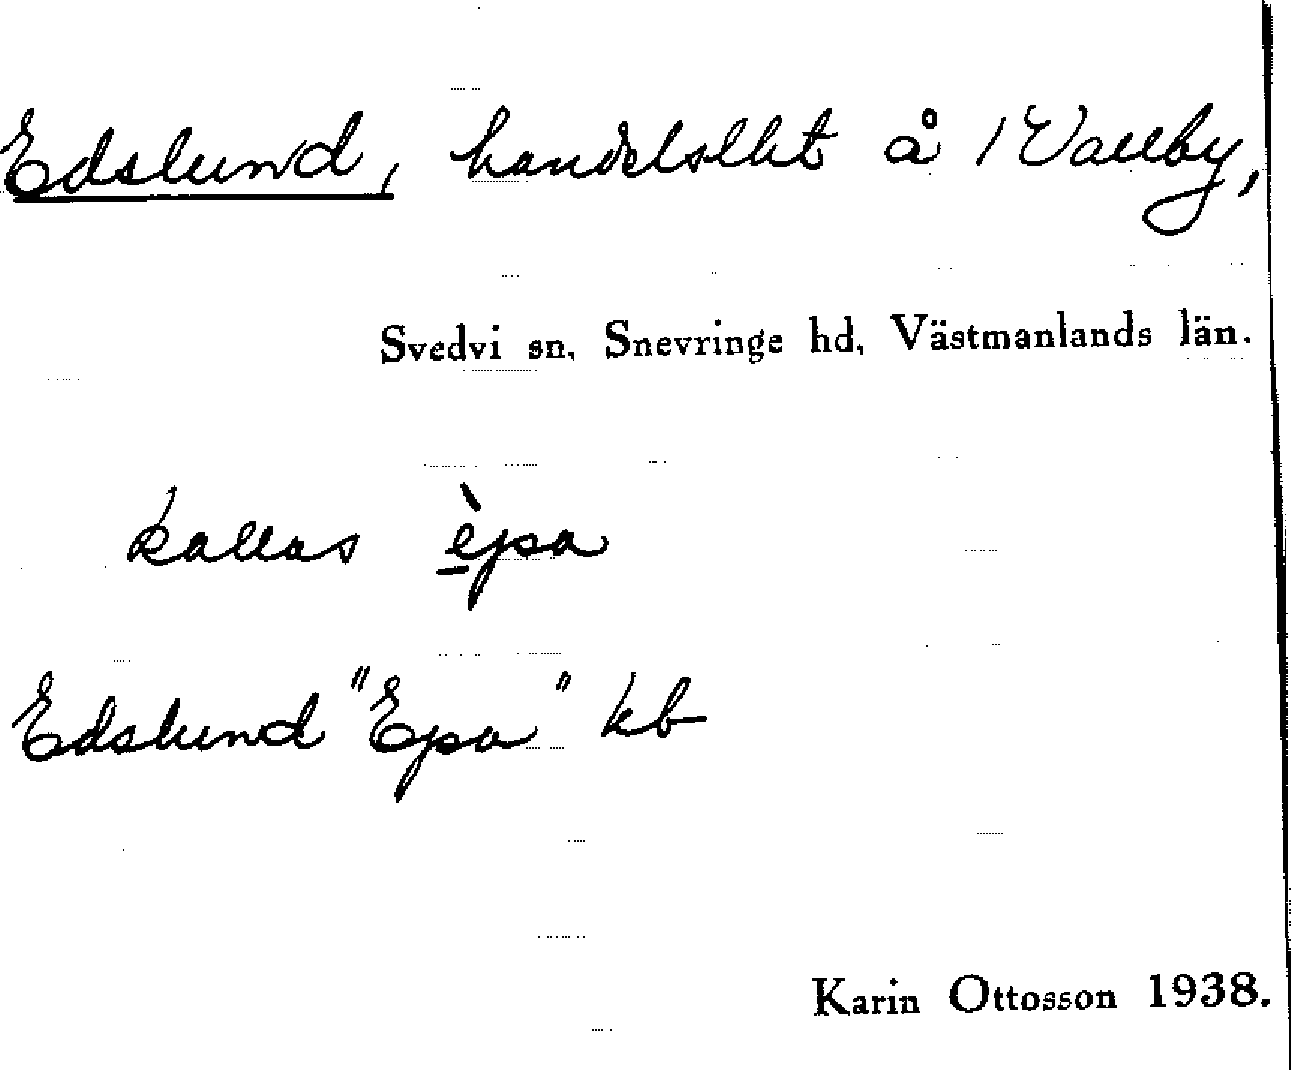 Edslund, handelslht å 1 Vallby,
Svedvi sn, Snevringe hd, Västmanlands län.
kallas èpa
Edslund "Epa" kb
Karin Ottosson 1938.